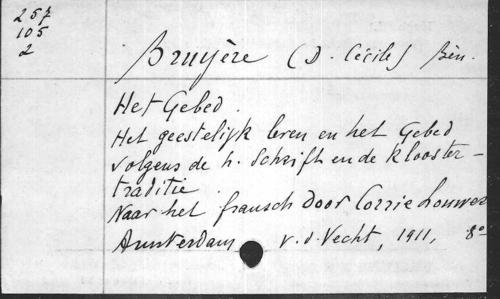 257
105
2
Bruyère (D. Cécile) Bèn.
Het Gebed.
Het geestelijk leven en het Gebed
volgens de h. Schrift en de klooster-
traditie
Naar het fransch door Corrie Louwer
Amsterdam v. d. Vecht, 1911, 8°